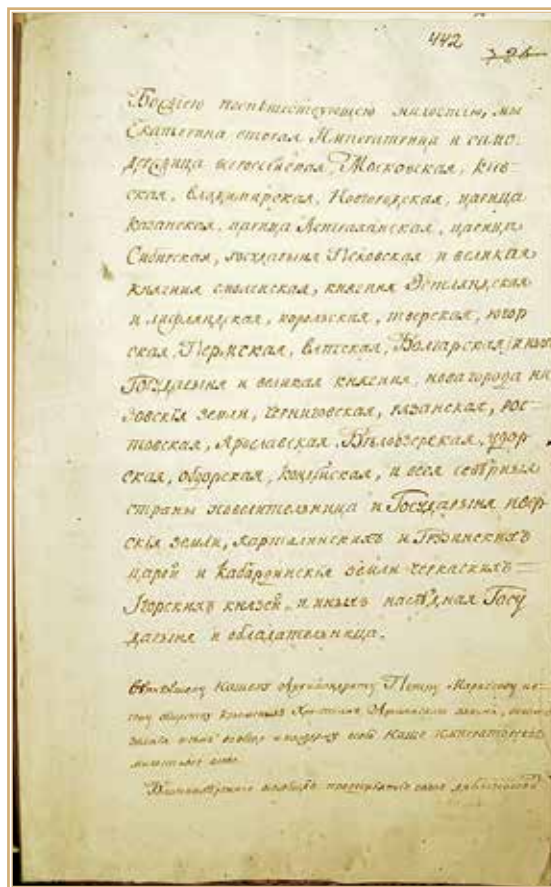 442
Божіею поспѣшествующею милостію, мы
Екатерина вторая Императрица и само-
держица всероссійская, Московская, Кіев-
ская, владимирская, Новгородская, царица
казанская, царица Астраханская, царица
Сибирская, государыня Псковская и великая
княгиня смоленская, княгиня Эстляндская
и лифляндская, корельская, тверская, югор
ская, Пермская, вятская, Болгарская и иныхъ
Государыня и великая княгиня, новагорода ни
зовскія земли, черниговская, рязанская, рос-
товская, Ярославская, Бѣлоозерская, удор
ская, обдорская, кондійская, и всея сѣверныя
страны повелительница и Государыня ивер
скія земли, карталинскихъ и Грузинскихъ
царей и кабардинскія земли черкаскихъ
Ігорскихъ князей, и иныхъ наслѣдная Госу
дарыня и обладательница.
нашему Архимандриту Петру Маркосову
обществу Крымскихъ Христіанъ Армянскаго закона,
наше императорское
милостивое слово.